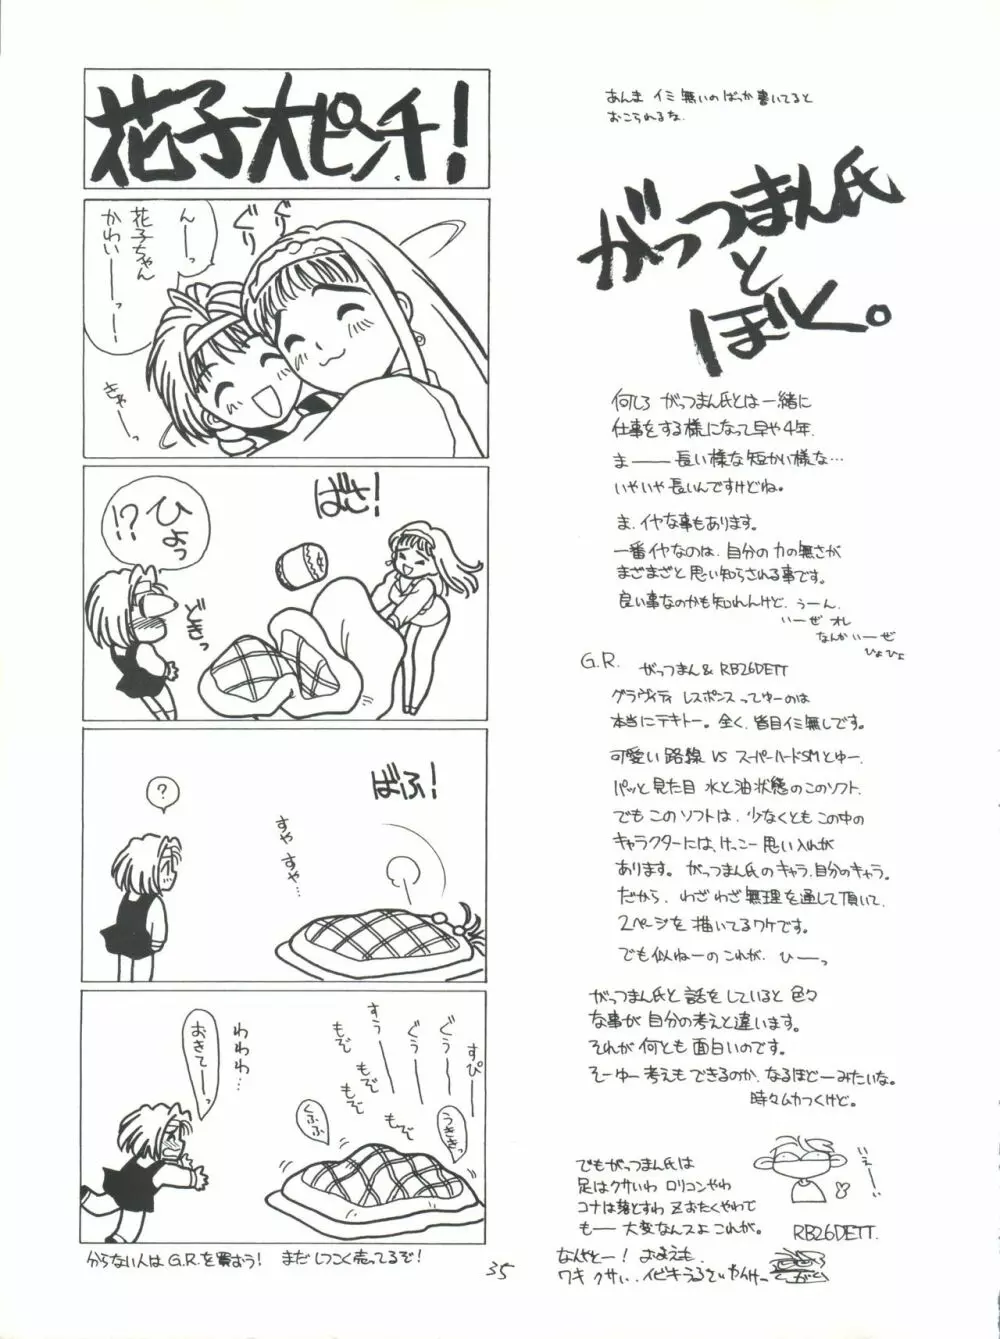 花子大ピンチ!
んーっ
花子ちゃん
かわいーっー
ぐりぐり
きゃーっ
ばさ!
ひょっ
!?
どきっ
ばふ!
?
すや すや…
おきてーっ
わわわ…
すぴーー
ぐぅーー
ぐぅーー
すぅーー
もぞ もぞ もぞ
もぞ もぞ
うききっ
くふふ
分からない人はG.R.を買おう! まだしつこく売ってるぞ!
35
あんま イミ無いのばっか書いてると
おこられるな.
がっつまん氏
と
ぼく。
何しろ がっつまん氏とは一緒に
仕事をする様になって早や4年.
ま――長い様な短かい様な…
いやいや長いんですけどね。
ま、イヤな事もあります。
一番イヤなのは、自分の力の無さが
まざまざと思い知らされる事です。
良い事なのかも知れんけど、うーん.
いーぜ オレ
なんか いーぜ
ひょひょ
G.R. がっつまん&RB26DETT
グラヴィティ レスポンスってゆーのは
本当にテキトー。全く、皆目イミ無しです。
可愛い路線 VS スーパーハードSMとゆー、
パッと見た目 水と油状態のこのソフト.
でもこのソフトは、少なくともこの中の
キャラクターには、けっこー思い入れが
あります。がっつまん氏のキャラ、自分のキャラ。
だから、わざわざ無理を通して頂いて、
2ページを描いてるワケです。
でも似ねーのこれが、ひーっ
がっつまん氏と話をしていると色々
な事が自分の考えと違います。
それが何とも面白いのです。
そーゆー考えもできるのか、なるほどーみたいな。
時々ムカつくけど。
でもがっつまん氏は
足はクサいわ ロリコンやわ
コナは落とすわ Zおたくやわで
も――大変なんスよこれが。
いえーーい
RB26DETT.
なんやとー! おまえも、
ワキ クサい、イビキうるさいやんけー